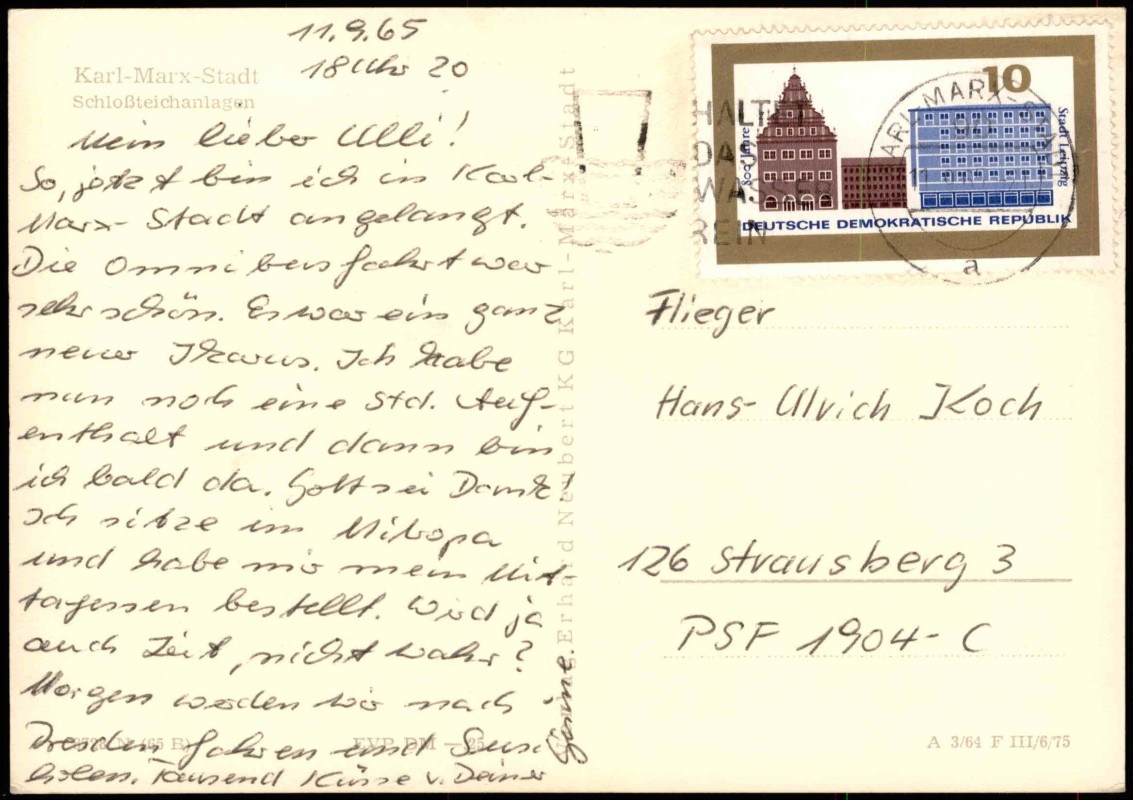 11.9.65
18 Uhr 20
Karl-Marx-Stadt
Schloßteichanlagen
Mein lieber Ulli!
So, jetzt bin ich in Karl-
Marx-Stadt angelangt.
Die Omnibusfahrt war
sehr schön. Es war ein ganz
neuer Ikarus. Ich habe
nun noch eine Std. Auf-
enthalt und dann bin
ich bald da. Gott sei Dank!
Ich sitze im Mitropa
und habe mir mein Mit-
tagessen bestellt. Wird ja
auch Zeit, nicht wahr?
Morgen werden wir nach
Dresden fahren und
holen. Tausend Küsse v. Deiner
Erhard Neubert KG Karl-Marx-Stadt
(65 B) EVP DM -.25
HALTET
DAS
WASSER
REIN
10
800 Jahre
Stadt Leipzig
DEUTSCHE DEMOKRATISCHE REPUBLIK
KARL-MARX-STADT
a
Flieger
Hans-Ulrich Koch
126 Strausberg 3
PSF 1904-C
A 3/64 F III/6/75